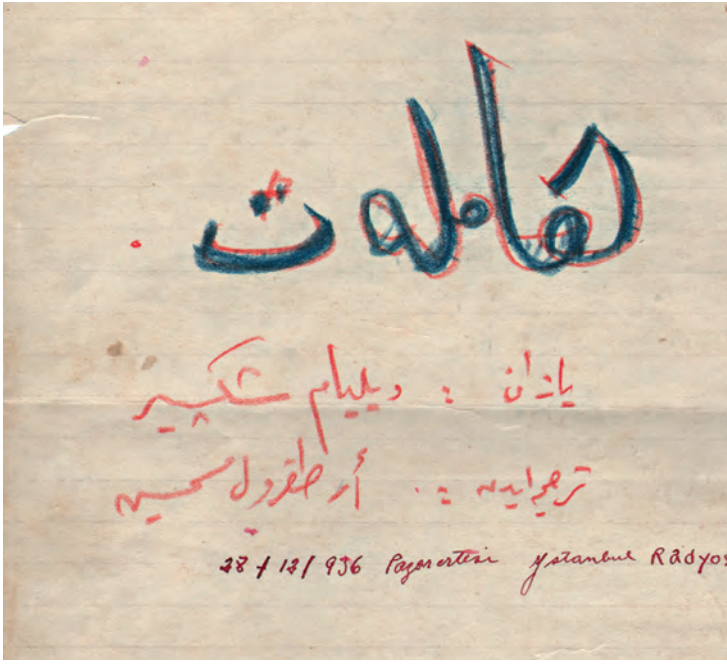 هاملەت
يازان : ويليام شكسپير
ترجمه ايدن : أرطغرول محسين
28/12/936 Pazarertesi Ystanbul Radyos